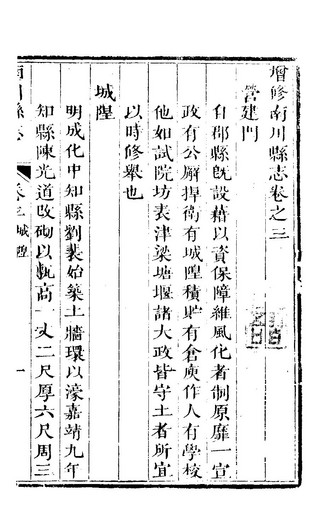 增修南川縣志卷之三
營建門
自郡縣旣設藉以資保障維風化者制原靡一宣
政有公廨捍衛有城隍積貯有倉庾作人有學校
他如試院坊表津梁塘堰諸大政皆守土者所宜
以時修舉也
城隍
明成化中知縣劉裴始築土牆環以濠嘉靖九年
知縣陳光道改砌以甎高一丈二尺厚六尺周三
南川縣志
卷之三 城隍
一